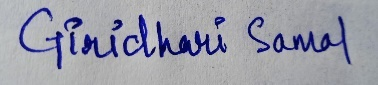 Giridhari Samal